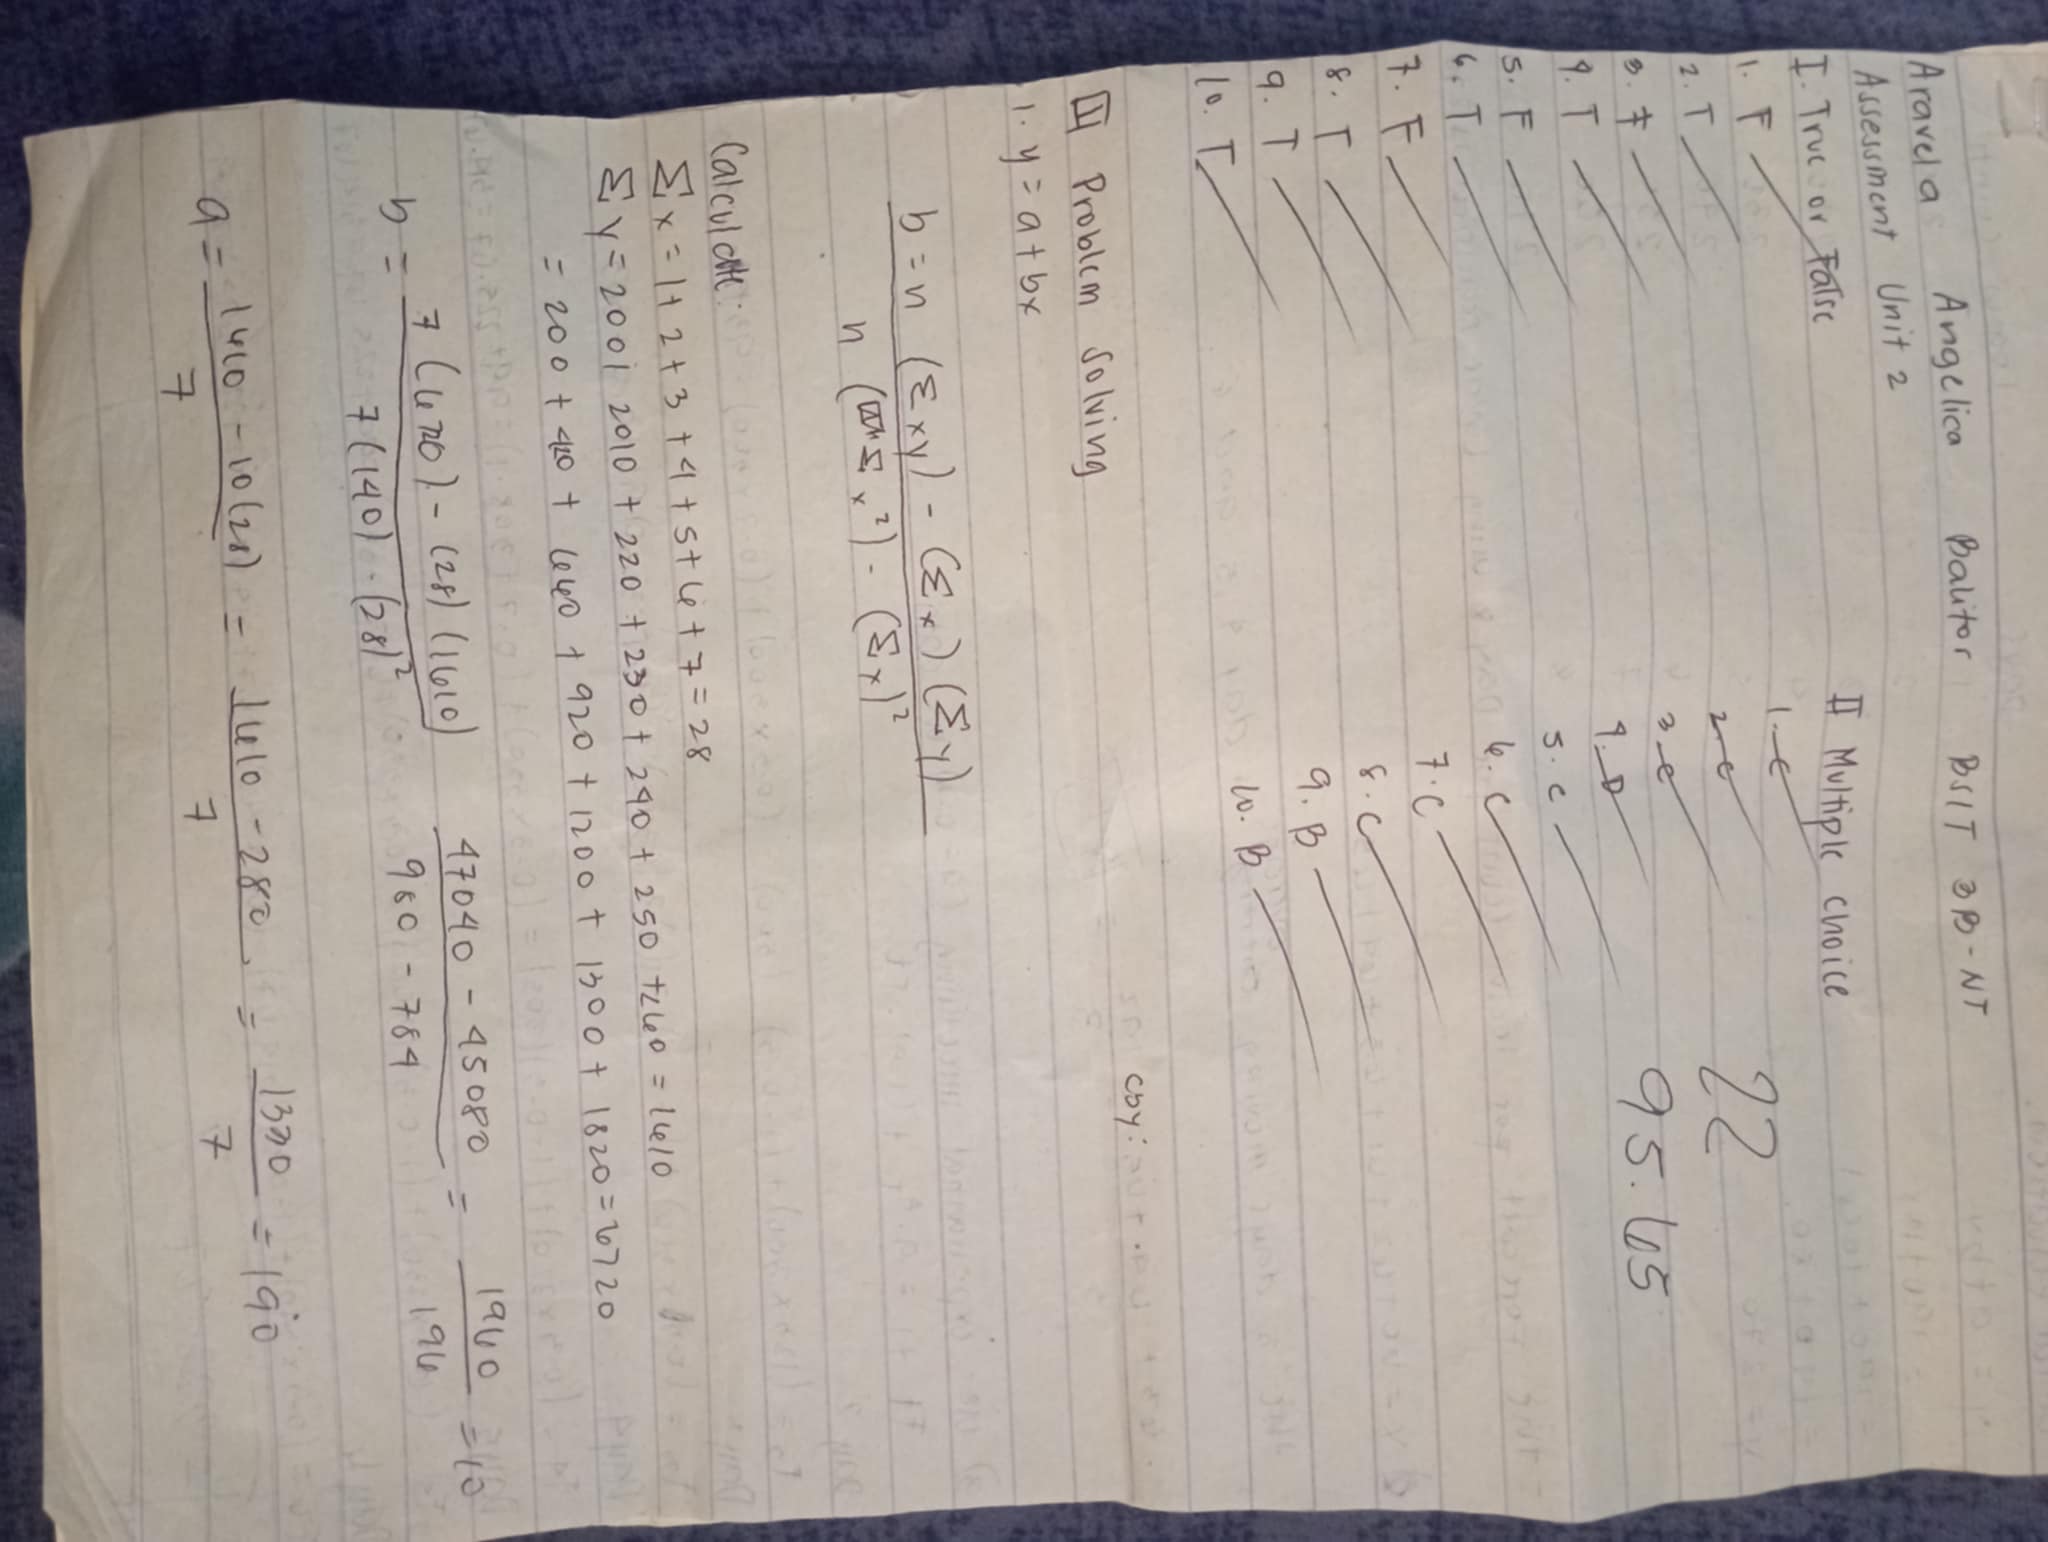 Aravela Angelica Balitor BSIT 3B-NT
Assessment Unit 2
I. True or False
1. F
2. T
3. F
4. T
5. F
6. T
7. F
8. T
9. T
10. T
II Multiple Choice
1. C
2. C
3. C
4. D
5. C
6. C
7. C
8. C
9. B
10. B
22
95.65
CBY:
III Problem Solving
1. y = a + bx
b = n (Σxy) - (Σx) (Σy)
n (Σx²) - (Σx)²
Calculate:
Σx = 1+2+3+4+5+6+7 = 28
Σy = 200+210+220+230+240+250+260 = 1610
= 200+420+660+920+1200+1300+1820 = 6720
b = 7(6720) - (28)(1610) 47040 - 45080 = 1960 = 10
7(140) - (28)² 980 - 784 196
a = 1610 - 10(28) = 1610 - 280 = 1330 = 190
7 7 7